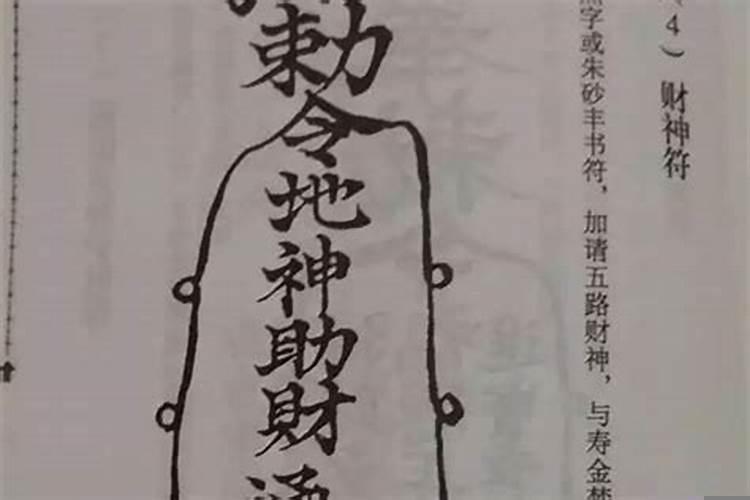 （4）财神符
字或朱砂丰书符，加请五路财神，与寿金焚
敕令地神助财通